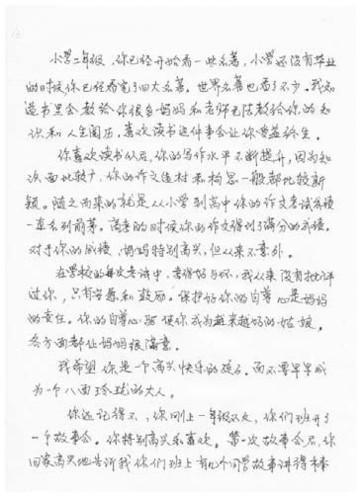 小学二年级，你已经开始看一些名著，小学还没有毕业
的时候你已经看完了四大名著。世界名著也看了不少。我知
道书里会教给你很多妈妈和老师无法教给你的知
识和人生阅历，喜欢读书这件事会让你受益终生。
你喜欢读书以后，你的写作水平不断提升，因为知
识面比较广，你的作文选材和构思一般都比较新
颖。随之而来的就是从小学到高中你的作文考试成绩
一直名列前茅。高考的时候你的作文得到了满分的成绩。
对于你的成绩，妈妈特别高兴，但从来不意外。
在学校的每次考试中，考得好与坏，我从来没有批评
过你，只有安慰和鼓励。保护好你的自尊心是妈妈
的责任。你的自尊心 使你成为越来越好的姑娘，
各方面都让妈妈很满意。
我希望你是一个高兴快乐的孩子，而不要早早成
为一个八面玲珑的大人。
你还记得不，你刚上一年级不久，你们班开了
一个故事会。你特别高兴和喜欢。第一次故事会后，你
回家高兴地告诉我你们班上有几个同学故事讲得非常